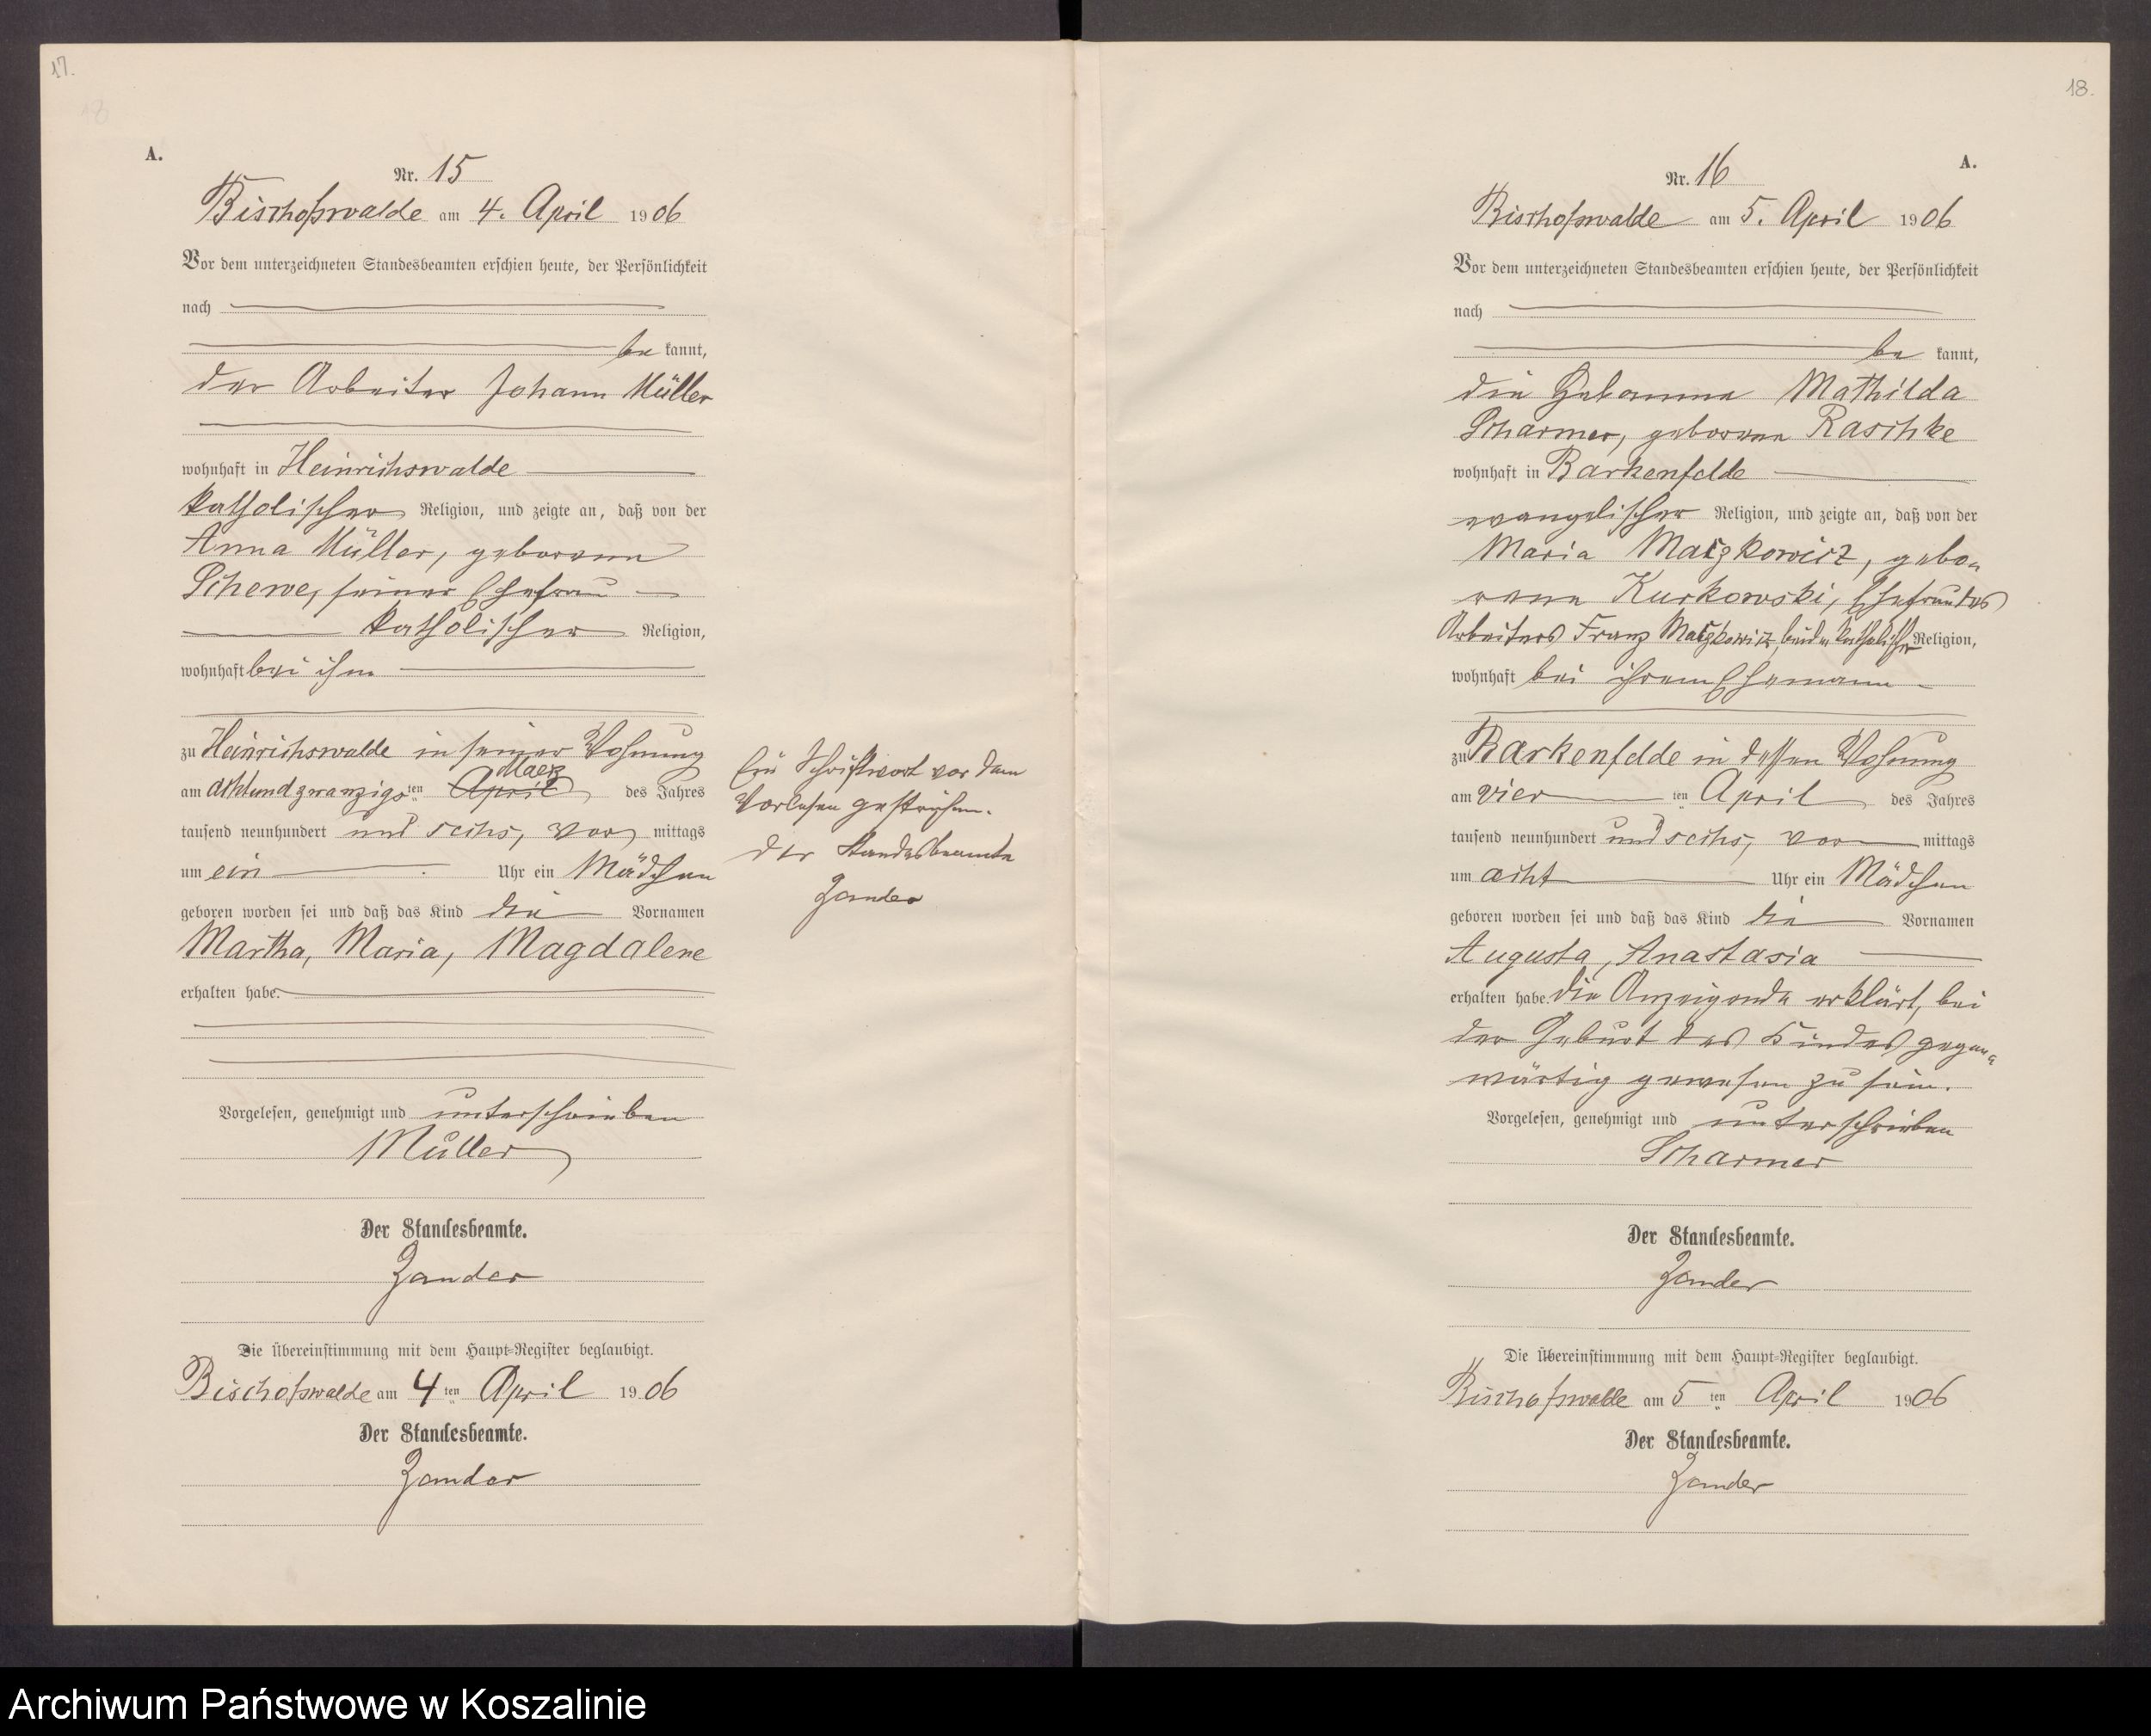 17.
A.
Nr. 15
Bischofswalde am 4. April 1906
Vor dem unterzeichneten Standesbeamten erschien heute, der Persönlichkeit
nach
be kannt,
der Arbeiter Johann Müller
wohnhaft in Heinrichswalde
katholischer Religion, und zeigte an, daß von der
Anna Müller, geborenen
Schewe, seiner Ehefrau
katholischer Religion,
wohnhaft bei ihm
zu Heinrichswalde in seiner Wohnung
Maerz
am achtundzwanzigsten April des Jahres
tausend neunhundert und sechs, vor mittags
um ein Uhr ein Mädchen
geboren worden sei und daß das Kind die Vornamen
Martha, Maria, Magdalene
erhalten habe.
Vorgelesen, genehmigt und unterschrieben
Müller
Der Standesbeamte.
Zander
Die Übereinstimmung mit dem Haupt-Register beglaubigt.
Bischofswalde am 4ten April 1906
Der Standesbeamte.
Zander
Ein Schriftwort vor dem
Vorlesen gestrichen.
Der Standesbeamte
Zander
18.
A.
Nr. 16
Bischofswalde am 5. April 1906
Vor dem unterzeichneten Standesbeamten erschien heute, der Persönlichkeit
nach
be kannt,
die Hebamme Mathilda
Scharmer, geborene Raschke
wohnhaft in Barkenfelde
evangelischer Religion, und zeigte an, daß von der
Maria , gebo-
rene Kurkowski, Ehefrau des
Arbeiters Franz , beide katholischer Religion,
wohnhaft bei ihrem Ehemann
zu Barkenfelde in dessen Wohnung
am vier ten April des Jahres
tausend neunhundert und sechs, vor mittags
um acht Uhr ein Mädchen
geboren worden sei und daß das Kind die Vornamen
Augusta, Anastasia
erhalten habe. Die Anzeigende erklärt, bei
der Geburt des Kindes gegen-
wärtig gewesen zu sein.
Vorgelesen, genehmigt und unterschrieben
Scharmer
Der Standesbeamte.
Zander
Die Übereinstimmung mit dem Haupt-Register beglaubigt.
Bischofswalde am 5ten April 1906
Der Standesbeamte.
Zander
Archiwum Państwowe w Koszalinie